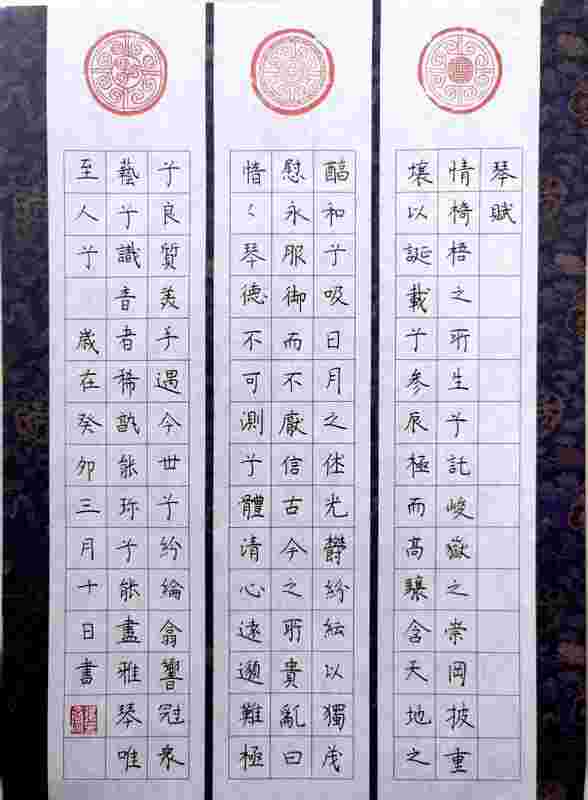 琴賦
情椅梧之所生兮託峻嶽之崇岡披重
壤以誕載兮參辰極而高驤含天地之
醕和兮吸日月之休光鬱紛紜以獨茂
慰永服御而不厭信古今之所貴亂曰
愔〻琴德不可測兮體清心遠邈難極
兮良質美手遇今世兮紛綸翕響冠衆
藝兮識音者稀孰能珍兮能盡雅琴唯
至人兮 歲在癸卯三月十日書